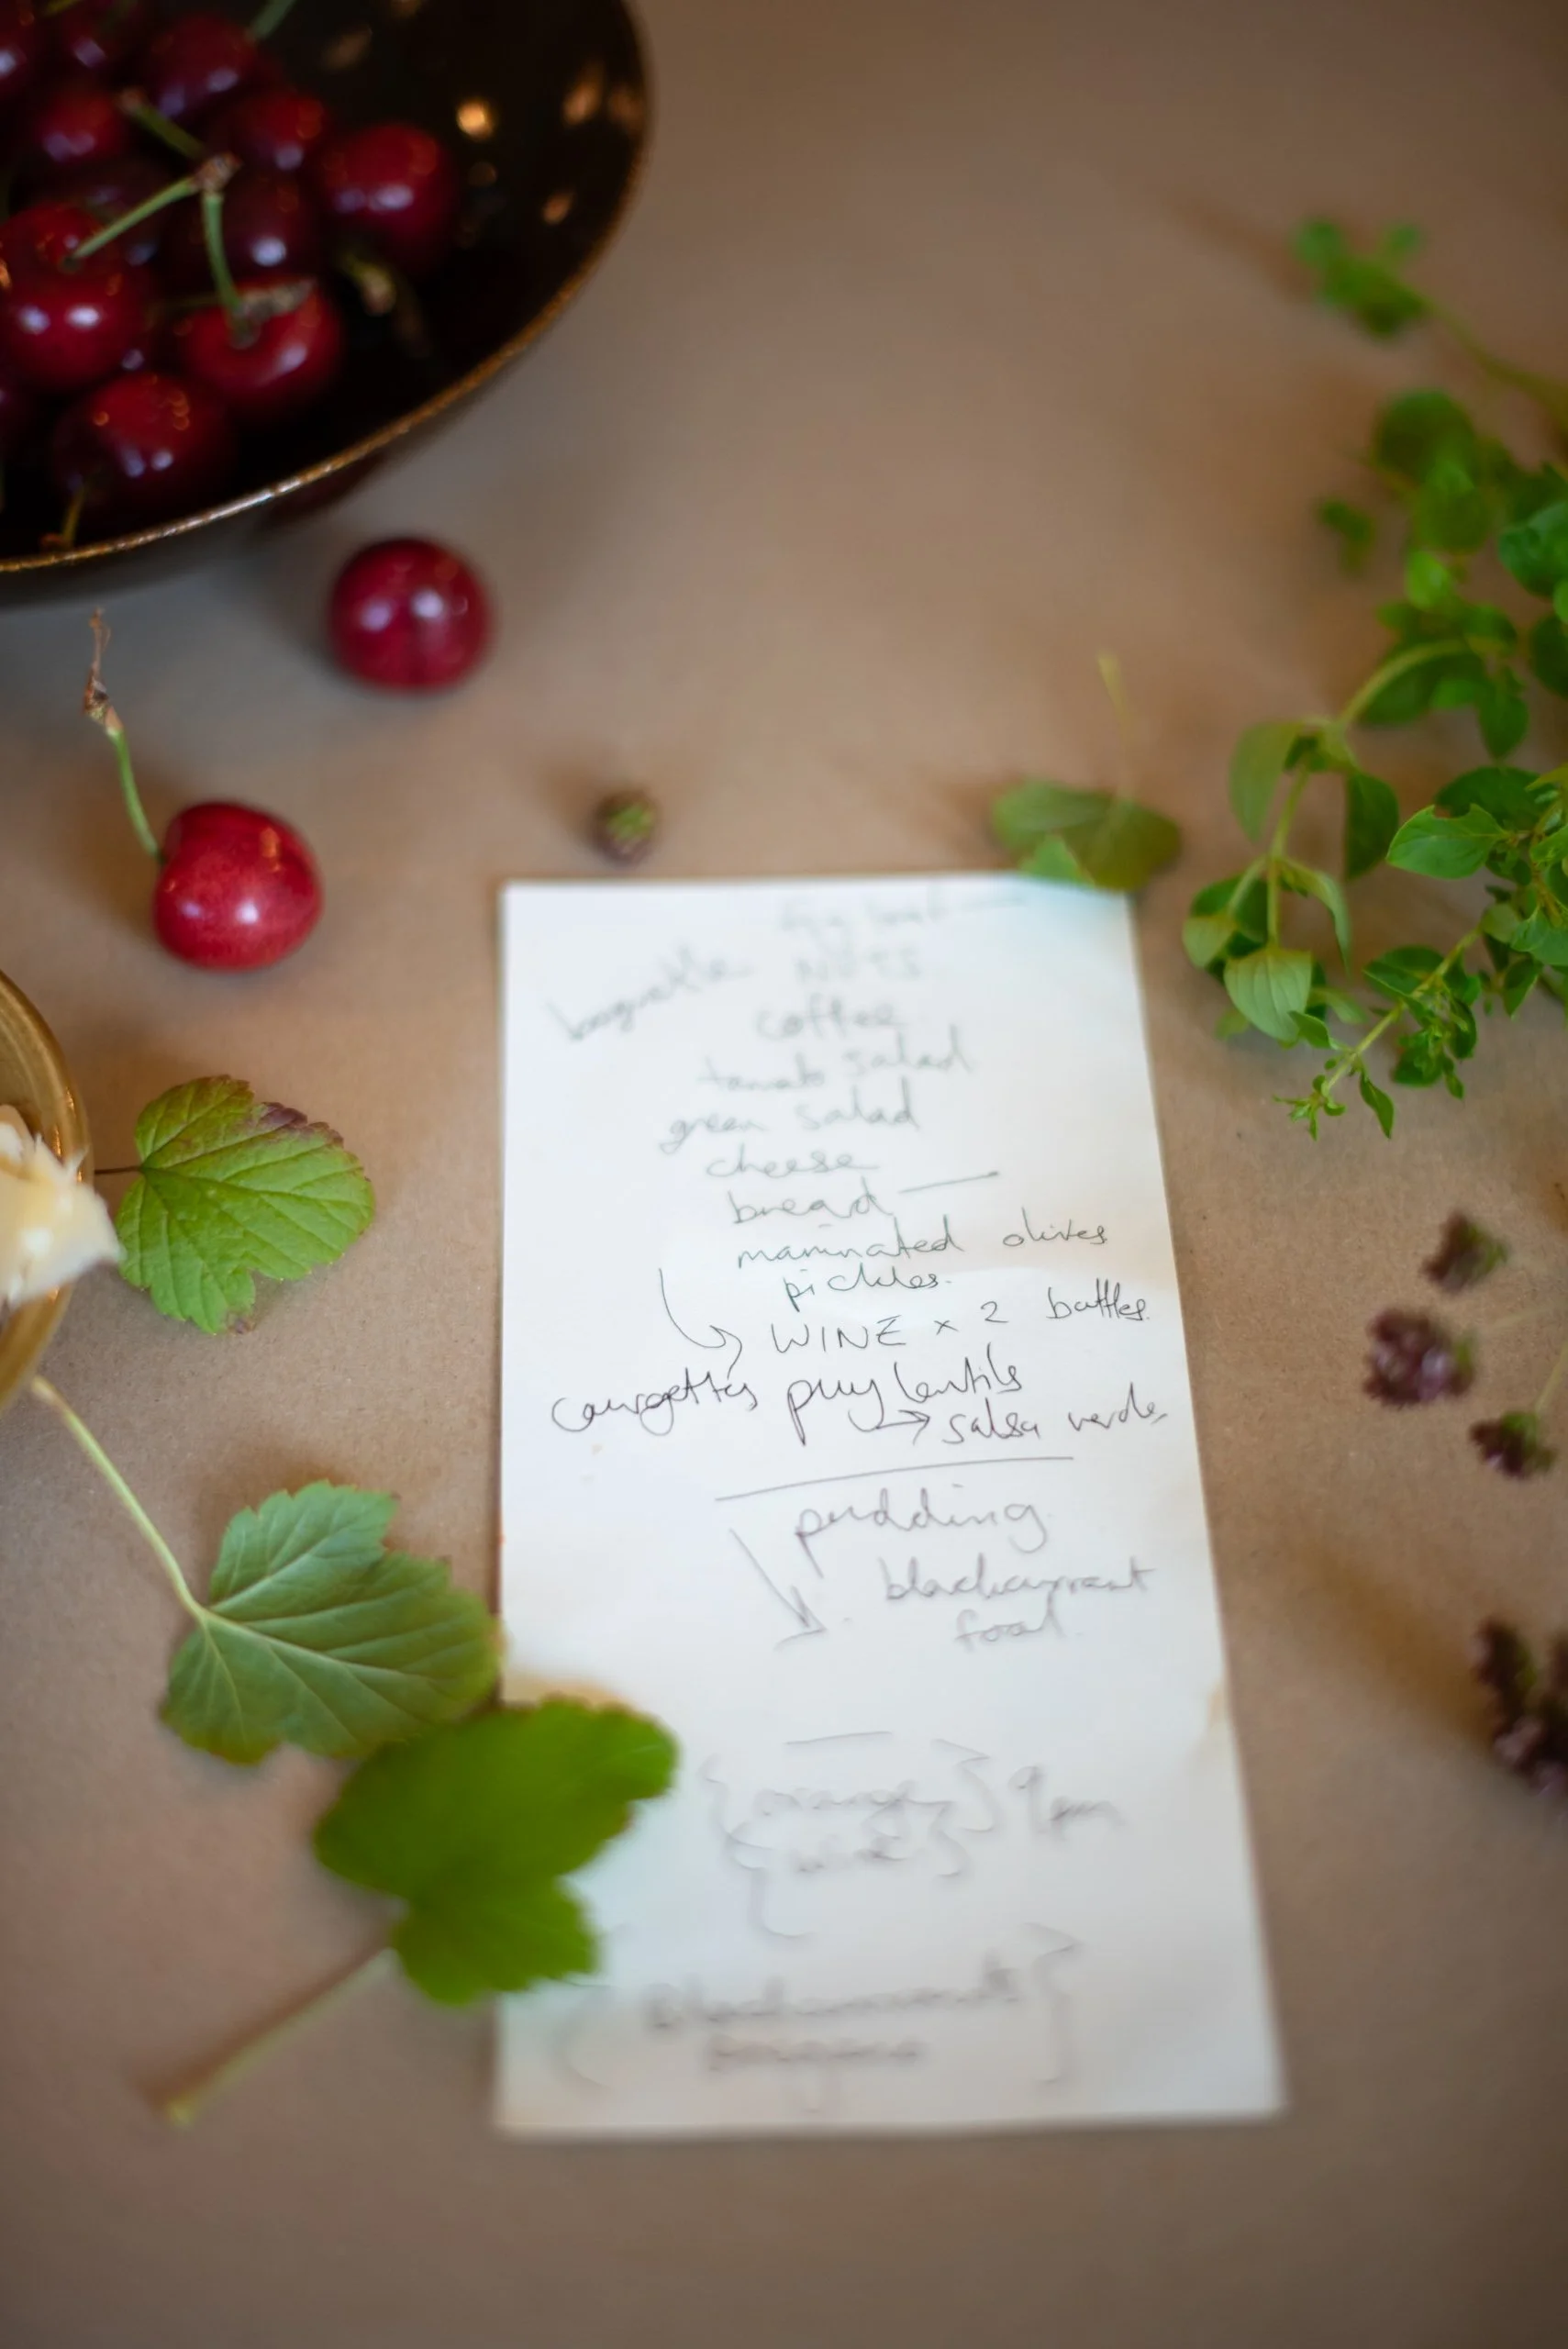 baguette
NUTS
coffee
tomato salad
green salad
cheese
bread
marinated olives
pickles.
WINE x 2 bottles.
courgettes puy lentils
salsa verde,
pudding
blackcurrant
fool.
orange
wine
9pm
Blackcurrants